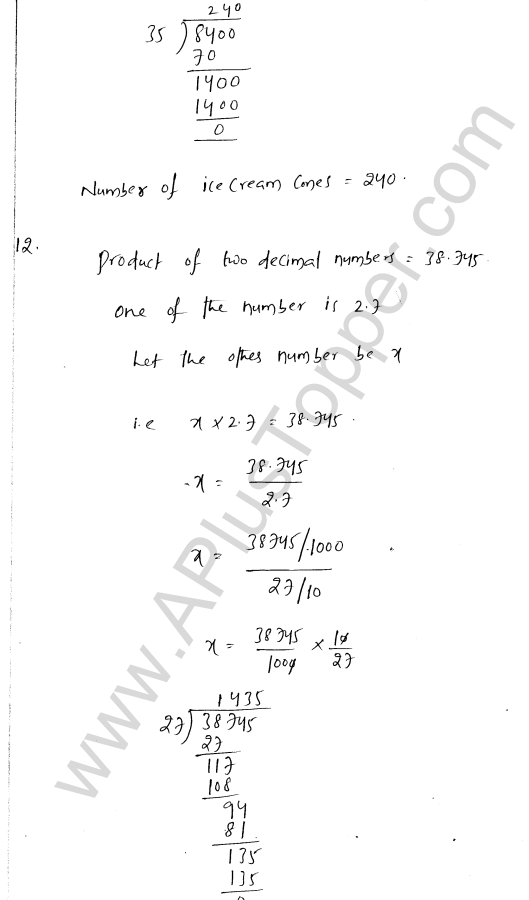 240
35 ) 8400
70
1400
1400
0
Number of ice cream Cones = 240.
12.
Product of two decimal numbers = 38.745
one of the number is 2.7
Let the other number be x
i.e x × 2.7 = 38.745.
x = 38.745 / 2.7
x = 38745/1000 / 27/10
x = 38745/1000 × 10/27
1435
27 ) 38745
27
117
108
94
81
135
135
0
www.APlusTopper.com